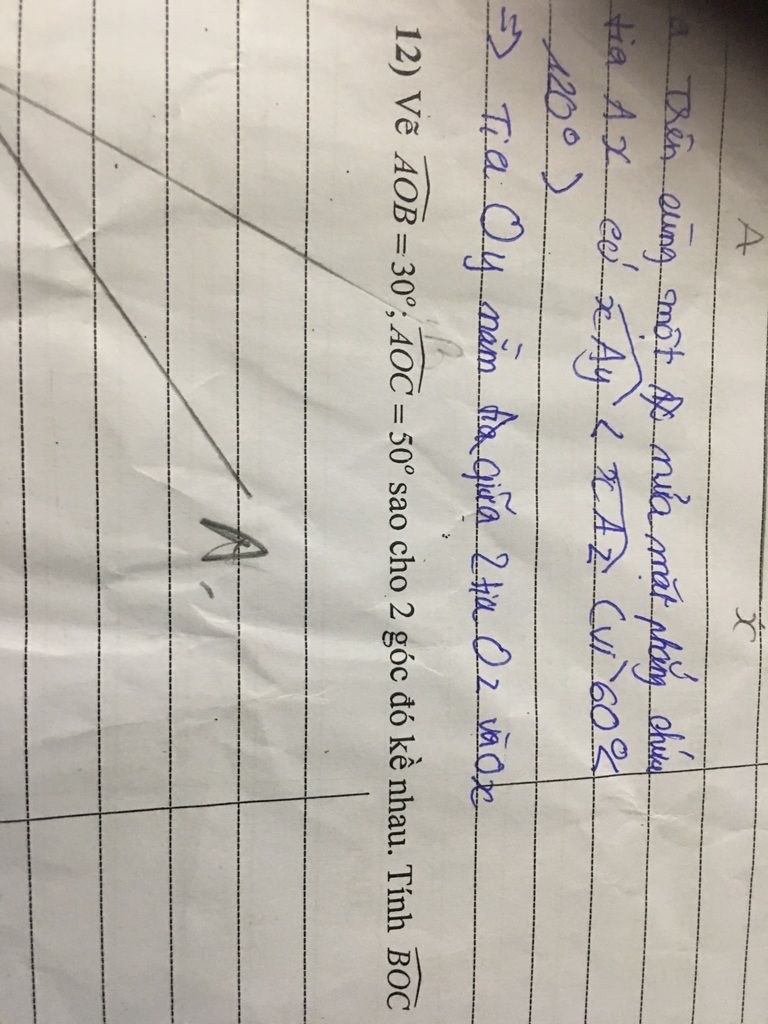 A x
Trên cùng một nửa mặt phẳng chứa
tia Ax có xAy < xAz (vì 60° <
120°)
=> Tia Oy nằm giữa 2 tia Oz và Ox
12) Vẽ AOB = 30°; AOC = 50° sao cho 2 góc đó kề nhau. Tính BOC
B
A